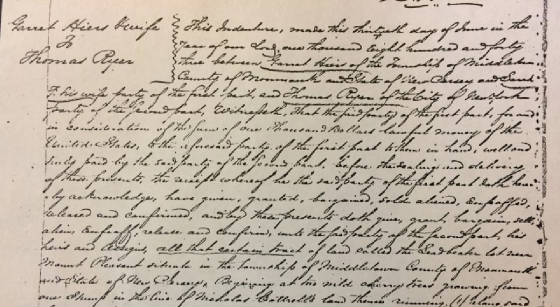 Garret Hiers & wife
To
Thomas Ryer
This Indenture, made this thirtieth day of June in the
Year of our Lord, one thousand eight hundred and forty
three between Garret Hiers of the Township of Middletown
County of Monmouth and State of New Jersey and
his wife party of the first part, and Thomas Ryer of the City of New York
party of the second part, Witnesseth, that the said party of the first part, for and
in consideration of the sum of one Thousand Dollars lawful money of the
United States, to the aforesaid party of the first part to them in hand, well and
truly paid by the said party of the second part, before the sealing and delivery
of these presents, the receipt whereof he the said party of the first part doth here
by acknowledge, have given, granted, bargained, sold, aliened, enfeoffed,
released and confirmed, and by these presents doth give, grant, bargain, sell,
alien, enfeoff, release and confirm, unto the said party of the second part, his
heirs and assigns, all that certain tract of land called the lot near
Mount Pleasant situate in the township of Middletown County of Monmouth
and State of New Jersey, Beginning at two wild cherry trees growing from
one stump in the line of Nicholas land thence running